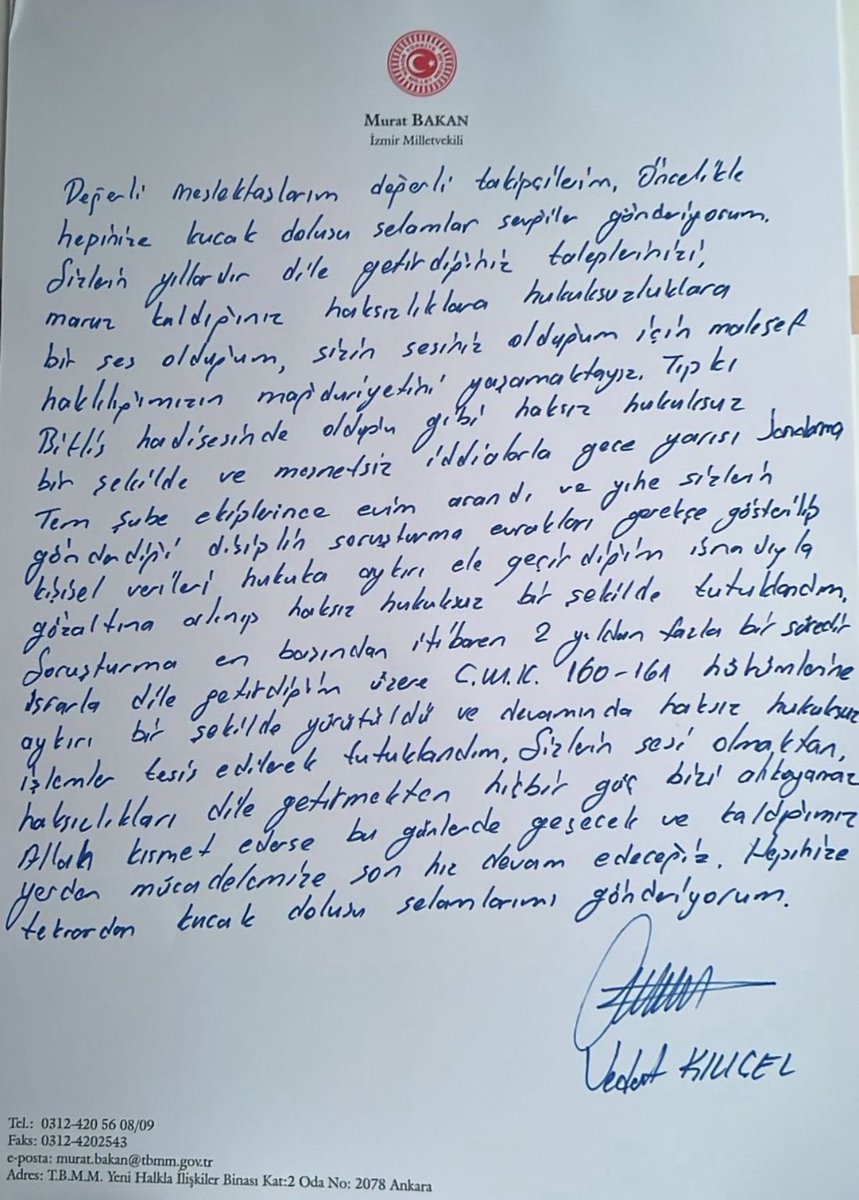 Murat BAKAN
İzmir Milletvekili
Değerli meslektaşlarım değerli takipçilerim, Öncelikle
hepinize kucak dolusu selamlar sevgiler gönderiyorum.
Sizlerin yıllardır dile getirdiğiniz taleplerinizi,
maruz kaldığınız haksızlıklara hukuksuzluklara
bir ses olduğum, sizin sesiniz olduğum için malesef
haklılığımızın mağduriyetini yaşamaktayız. Tıpkı
Bitlis hadisesinde olduğu gibi haksız hukuksuz
bir şekilde ve mesnetsiz iddialarla gece yarısı Jandarma
Tem Şube ekiplerince evim arandı ve yine sizlerin
gönderdiği disiplin soruşturma evrakları gerekçe gösterilip
kişisel verileri hukuka aykırı ele geçirdiğim isnadıyla
gözaltına alınıp haksız hukuksuz bir şekilde tutuklandım.
Soruşturma en başından itibaren 2 yıldan fazla bir süredir
ısrarla dile getirdiğim üzere C.M.K. 160-161 hükümlerine
aykırı bir şekilde yürütüldü ve devamında haksız hukuksuz
işlemler tesis edilerek tutuklandım. Sizlerin sesi olmaktan,
haksızlıkları dile getirmekten hiçbir güç bizi alıkoyamaz
Allah kısmet ederse bu günlerde geçecek ve kaldığımız
yerden mücadelemize son hız devam edeceğiz. Hepinize
tekrardan kucak dolusu selamlarımı gönderiyorum.
Vedat
Tel.: 0312-420 56 08/09
Faks: 0312-4202543
e-posta: murat.bakan@tbmm.gov.tr
Adres: T.B.M.M. Yeni Halkla İlişkiler Binası Kat:2 Oda No: 2078 Ankara